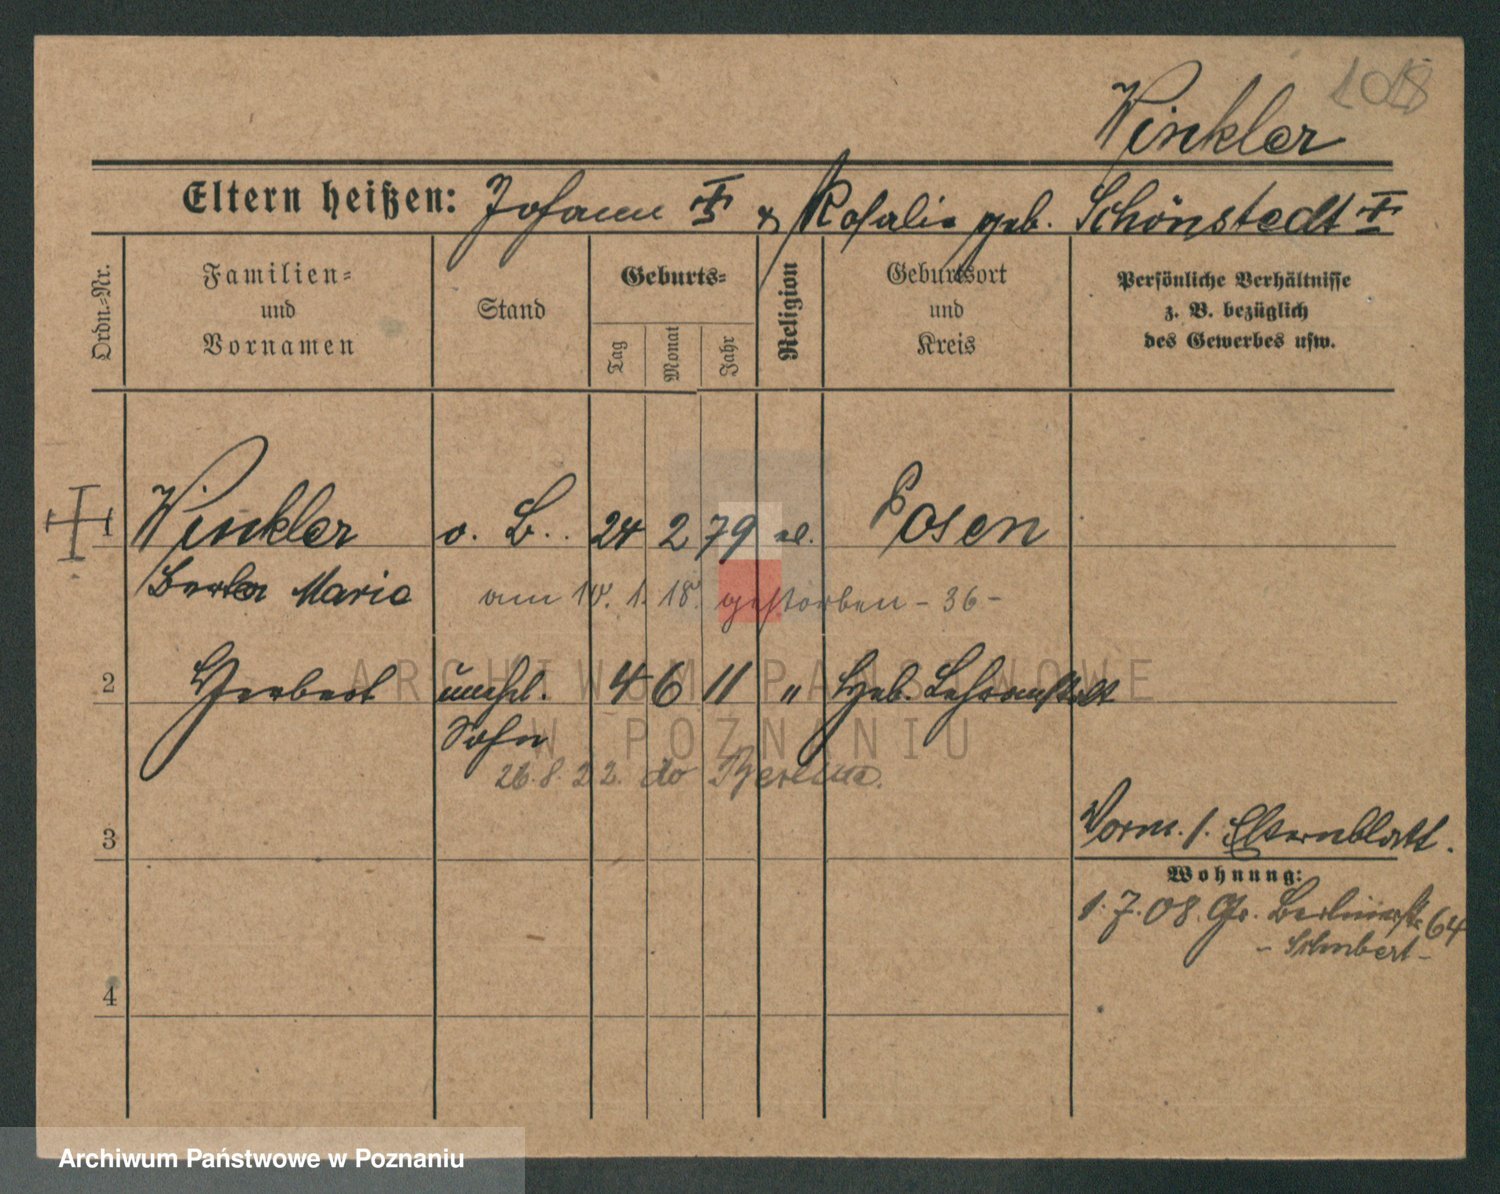 1018
Winkler
Eltern heißen: Johann & Rosalie geb. Schönstedt
Ordn.-Nr.
Familien- und Vornamen
Stand
Geburts-
Tag
Monat
Jahr
Religion
Geburtsort und Kreis
Persönliche Verhältnisse z. B. bezüglich des Gewerbes usw.
1 Winkler o. B.. 24 2 79 Posen
Berta Marie
am 10. 1. 18. gestorben - 36 -
2 Herbert unehel. 4 6 11 " Heb. Lehranstalt
Sohn
26.8.22. do Berlina.
3
Vorm. s. Elternblatt.
Wohnung:
1.7.08. Gr. Berlinerstr 64
- Schubert -
4
ARCHIWUM PAŃSTWOWE
W POZNANIU
Archiwum Państwowe w Poznaniu